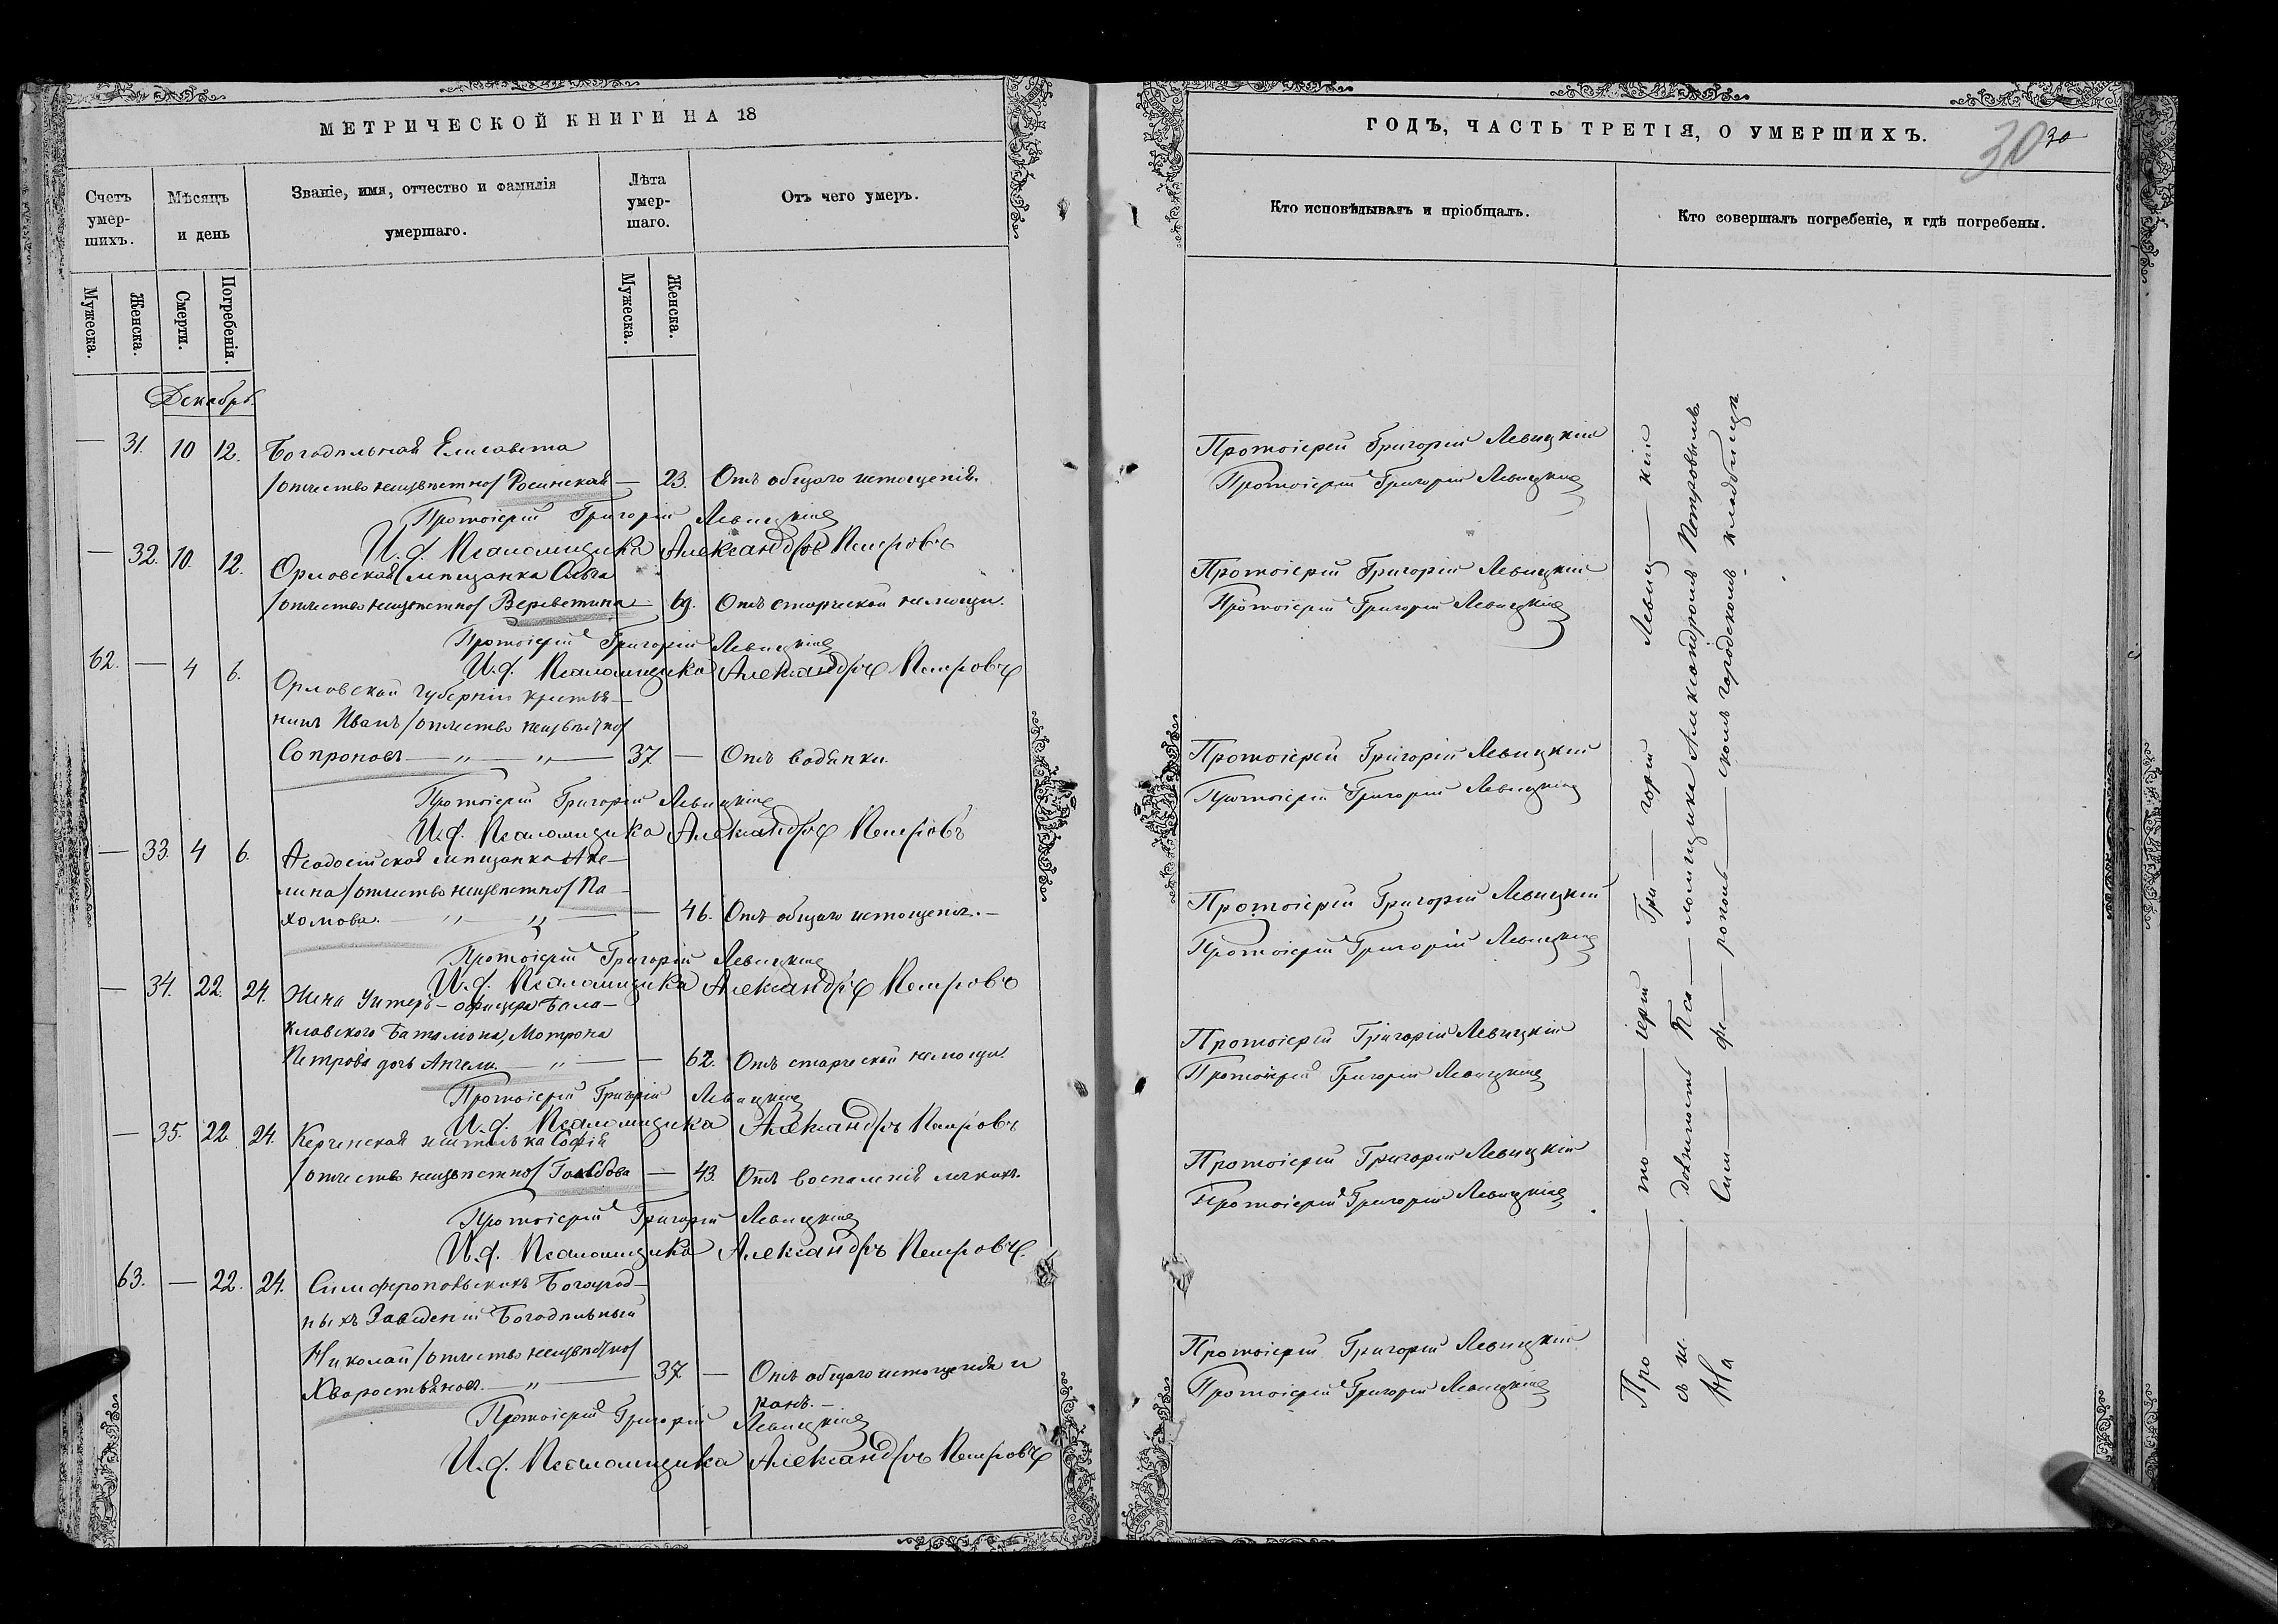 МЕТРИЧЕСКОЙ КНИГИ НА 18
Счетъ умер-шихъ.
Мѣсяцъ и день
Званіе, имя, отчество и фамилія умершаго.
Лѣта умер-шаго.
Отъ чего умеръ.
Мужеска.
Женска.
Смерти.
Погребенія.
Мужеска.
Женска.
Декабрь.
— 31. 10 12. Богадѣльная Елисавета
/отчество неизвѣстно/ Росинская — 23. Отъ общаго истощенія.
Протоіерей Григорій Левицкій
И.д. Псаломщика Александръ Петровъ
— 32. 10. 12. Орловская мѣщанка Ольга
/отчество неизвѣстно/ Вереветина — 69. Отъ старческой немощи.
Протоіерей Григорій Левицкій
И.д. Псаломщика Александръ Петровъ
62. — 4 6. Орловской губерніи крестья-
нинъ Иванъ /отчество неизвѣстно/
Сопроновъ — „ — „ — 37 — Отъ водянки.
Протоіерей Григорій Левицкій
И.д. Псаломщика Александръ Петровъ
— 33. 4 6. Ѳеодосійская мѣщанка Аке-
лина /отчество неизвѣстно/ Па-
хомова. — „ — „ — — 46. Отъ общаго истощенія. —
Протоіерей Григорій Левицкій
И.д. Псаломщика Александръ Петровъ
— 34. 22. 24. Жена Унтеръ-офицера Бала-
клавского Баталіона, Мотрона
Петрова дочь Ангели. — „ — — 62. Отъ старческой немощи.
Протоіерей Григорій Левицкій
И.д. Псаломщика Александръ Петровъ
— 35. 22. 24. Керченская жителька Софія
/отчество неизвѣстно/ — 43. Отъ воспаленія легкихъ.
Протоіерей Григорій Левицкій
И.д. Псаломщика Александръ Петровъ.
63. — 22. 24. Симферопольскихъ Богоугод-
ныхъ Заведеній Богадѣльный
Николай /отчество неизвѣстно/
Хворостьяновъ. — „ — 37 — Отъ общаго истощенія и
ранъ. —
Протоіерей Григорій Левицкій
И.д. Псаломщика Александръ Петровъ
ГОДЪ, ЧАСТЬ ТРЕТІЯ, О УМЕРШИХЪ.
30 30
Кто исповѣдывалъ и пріобщалъ.
Кто совершалъ погребеніе, и гдѣ погребены.
Протоіерей Григорій Левицкій
Протоіерей Григорій Левицкій
Протоіерей Григорій Левицкій
Протоіерей Григорій Левицкій
Протоіерей Григорій Левицкій
Протоіерей Григорій Левицкій
Протоіерей Григорій Левицкій
Протоіерей Григорій Левицкій
Протоіерей Григорій Левицкій
Протоіерей Григорій Левицкій
Протоіерей Григорій Левицкій
Протоіерей Григорій Левицкій
Протоіерей Григорій Левицкій
Протоіерей Григорій Левицкій
Про — то — іерей Гри — горій Левиц — кій
съ и. — должность Пса — ломщика Александромъ Петровымъ.
На Сим — фе — рополь — скомъ городскомъ кладбищѣ